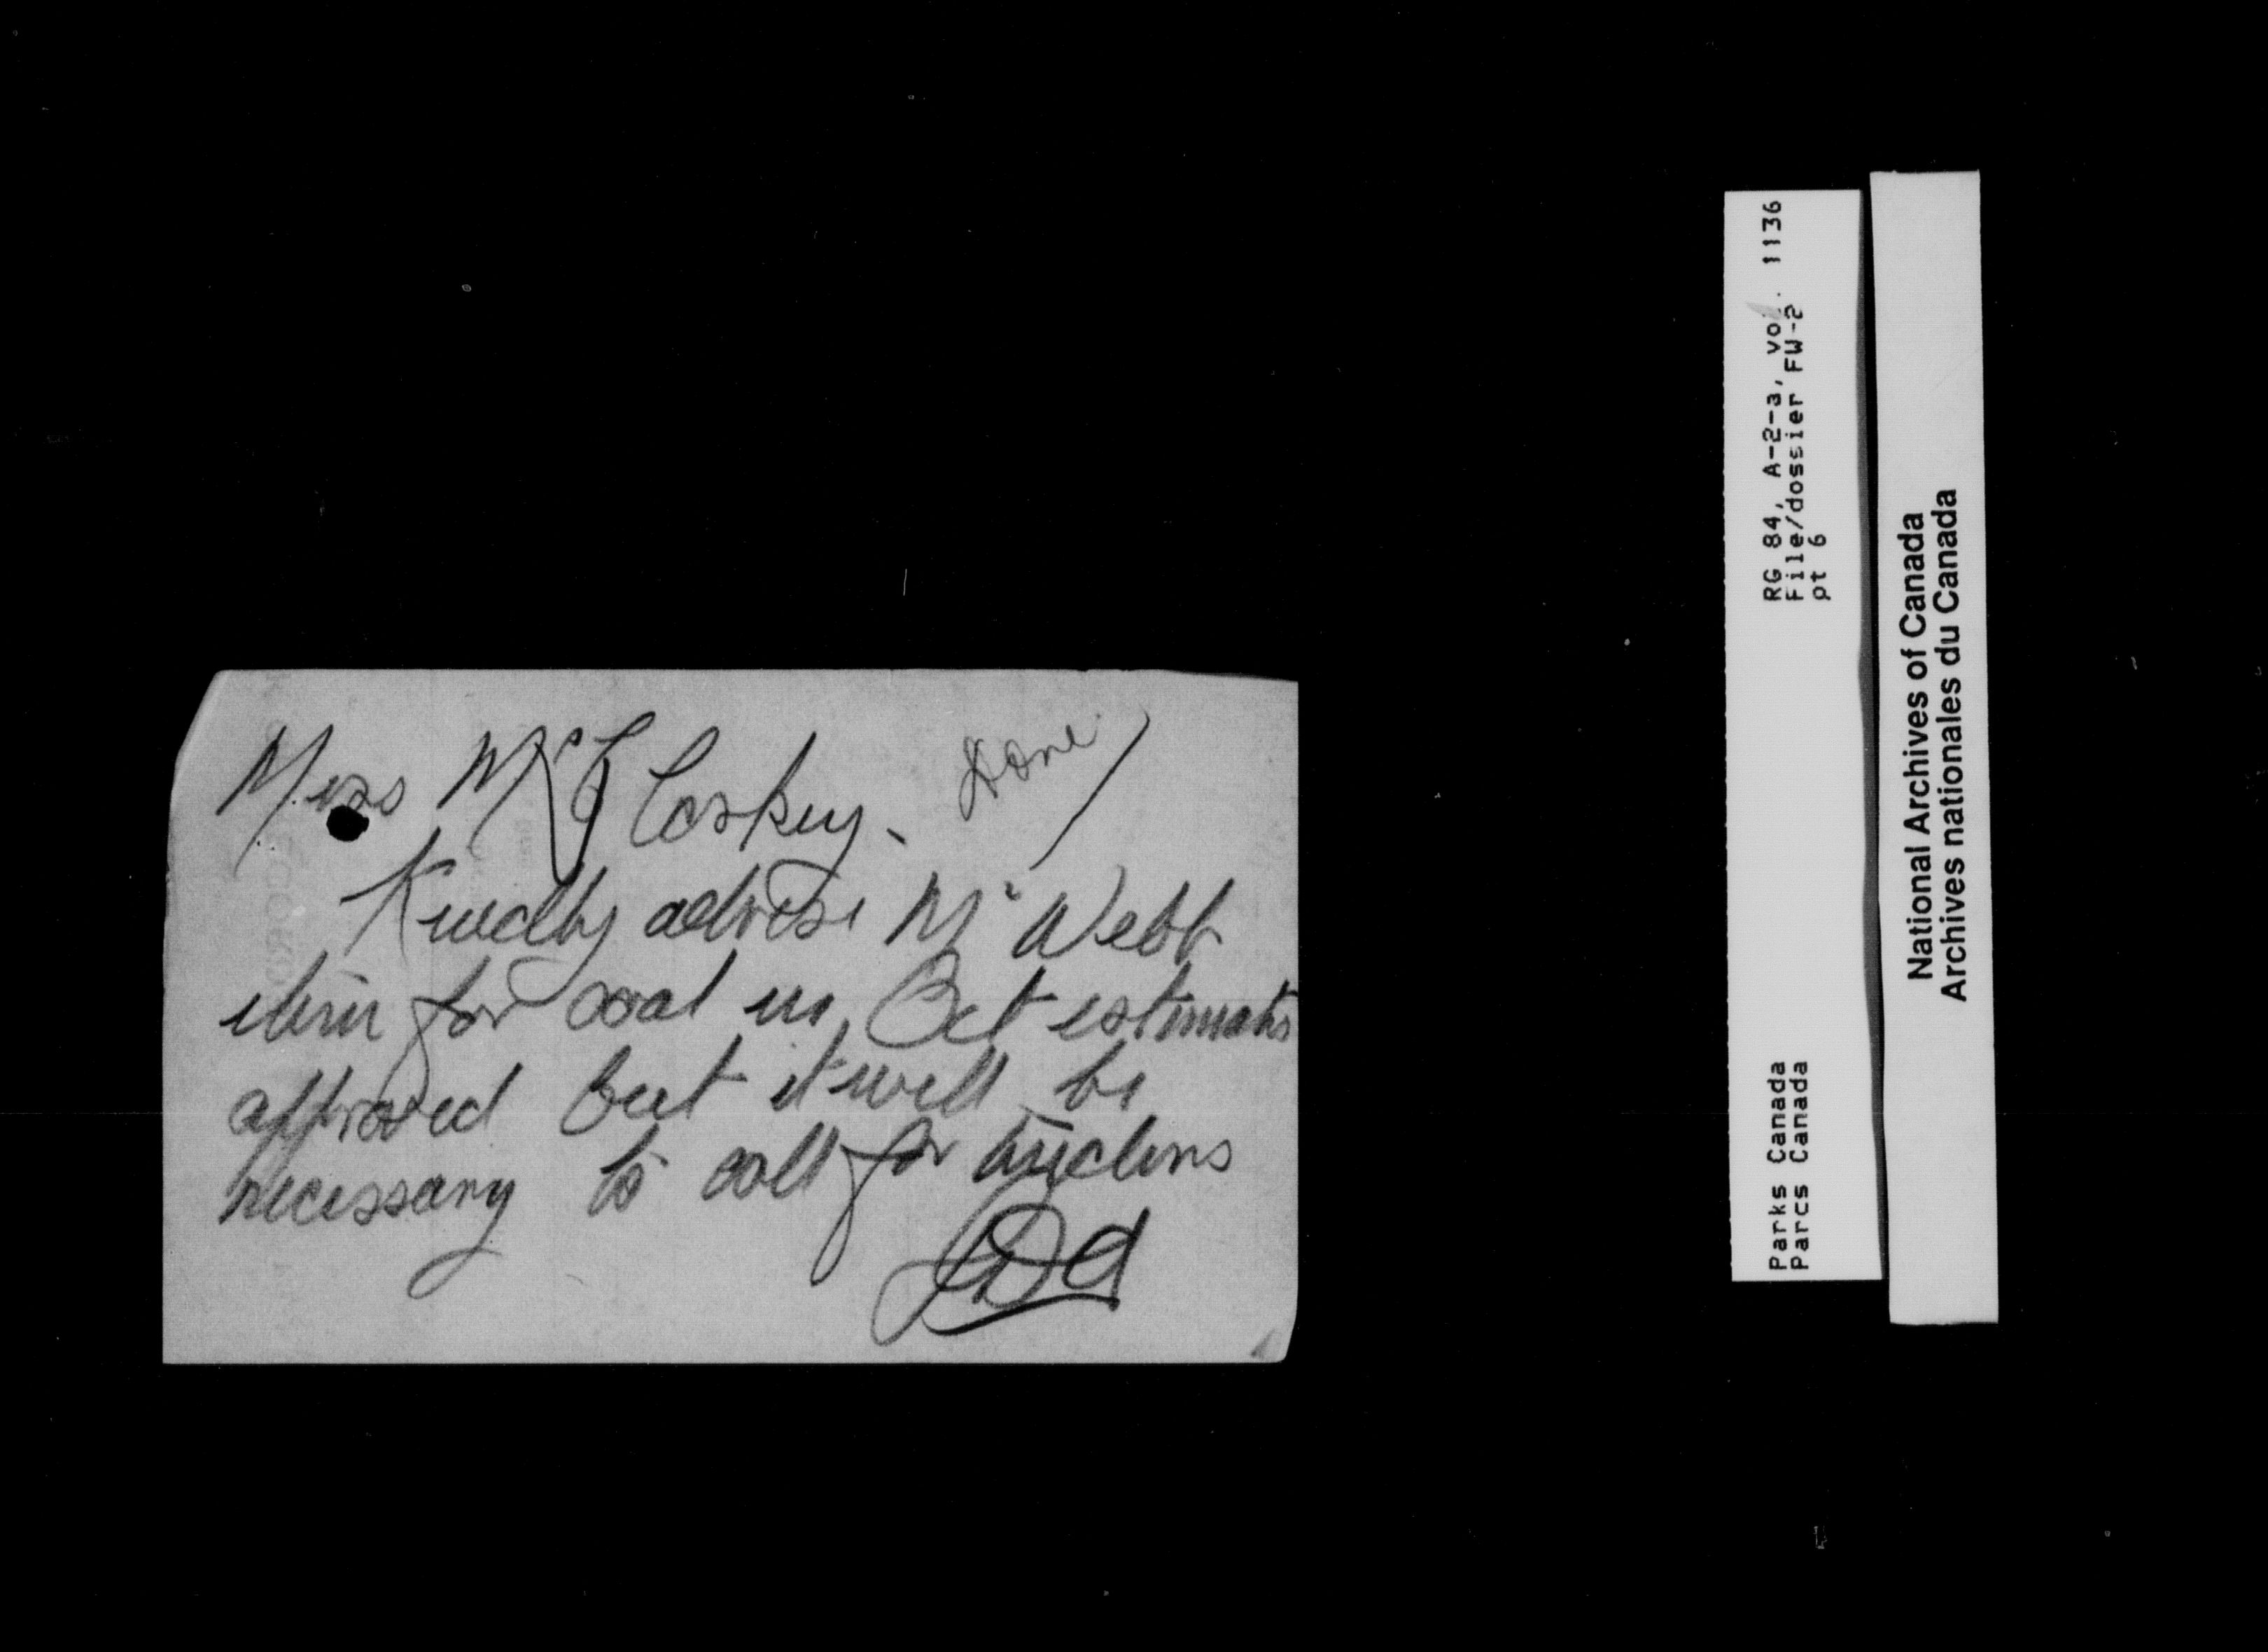 Miss McCloskey. Done
Kindly advise Mr Webb
item for coal in Oct estimates
approved but it will be
necessary to call for tenders
RG 84, A-2-a, vol. 1136
File/dossier FW-2
pt 6
Parks Canada
Parcs Canada
National Archives of Canada
Archives nationales du Canada